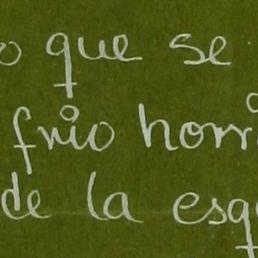 o que se
frio horri
de la esq